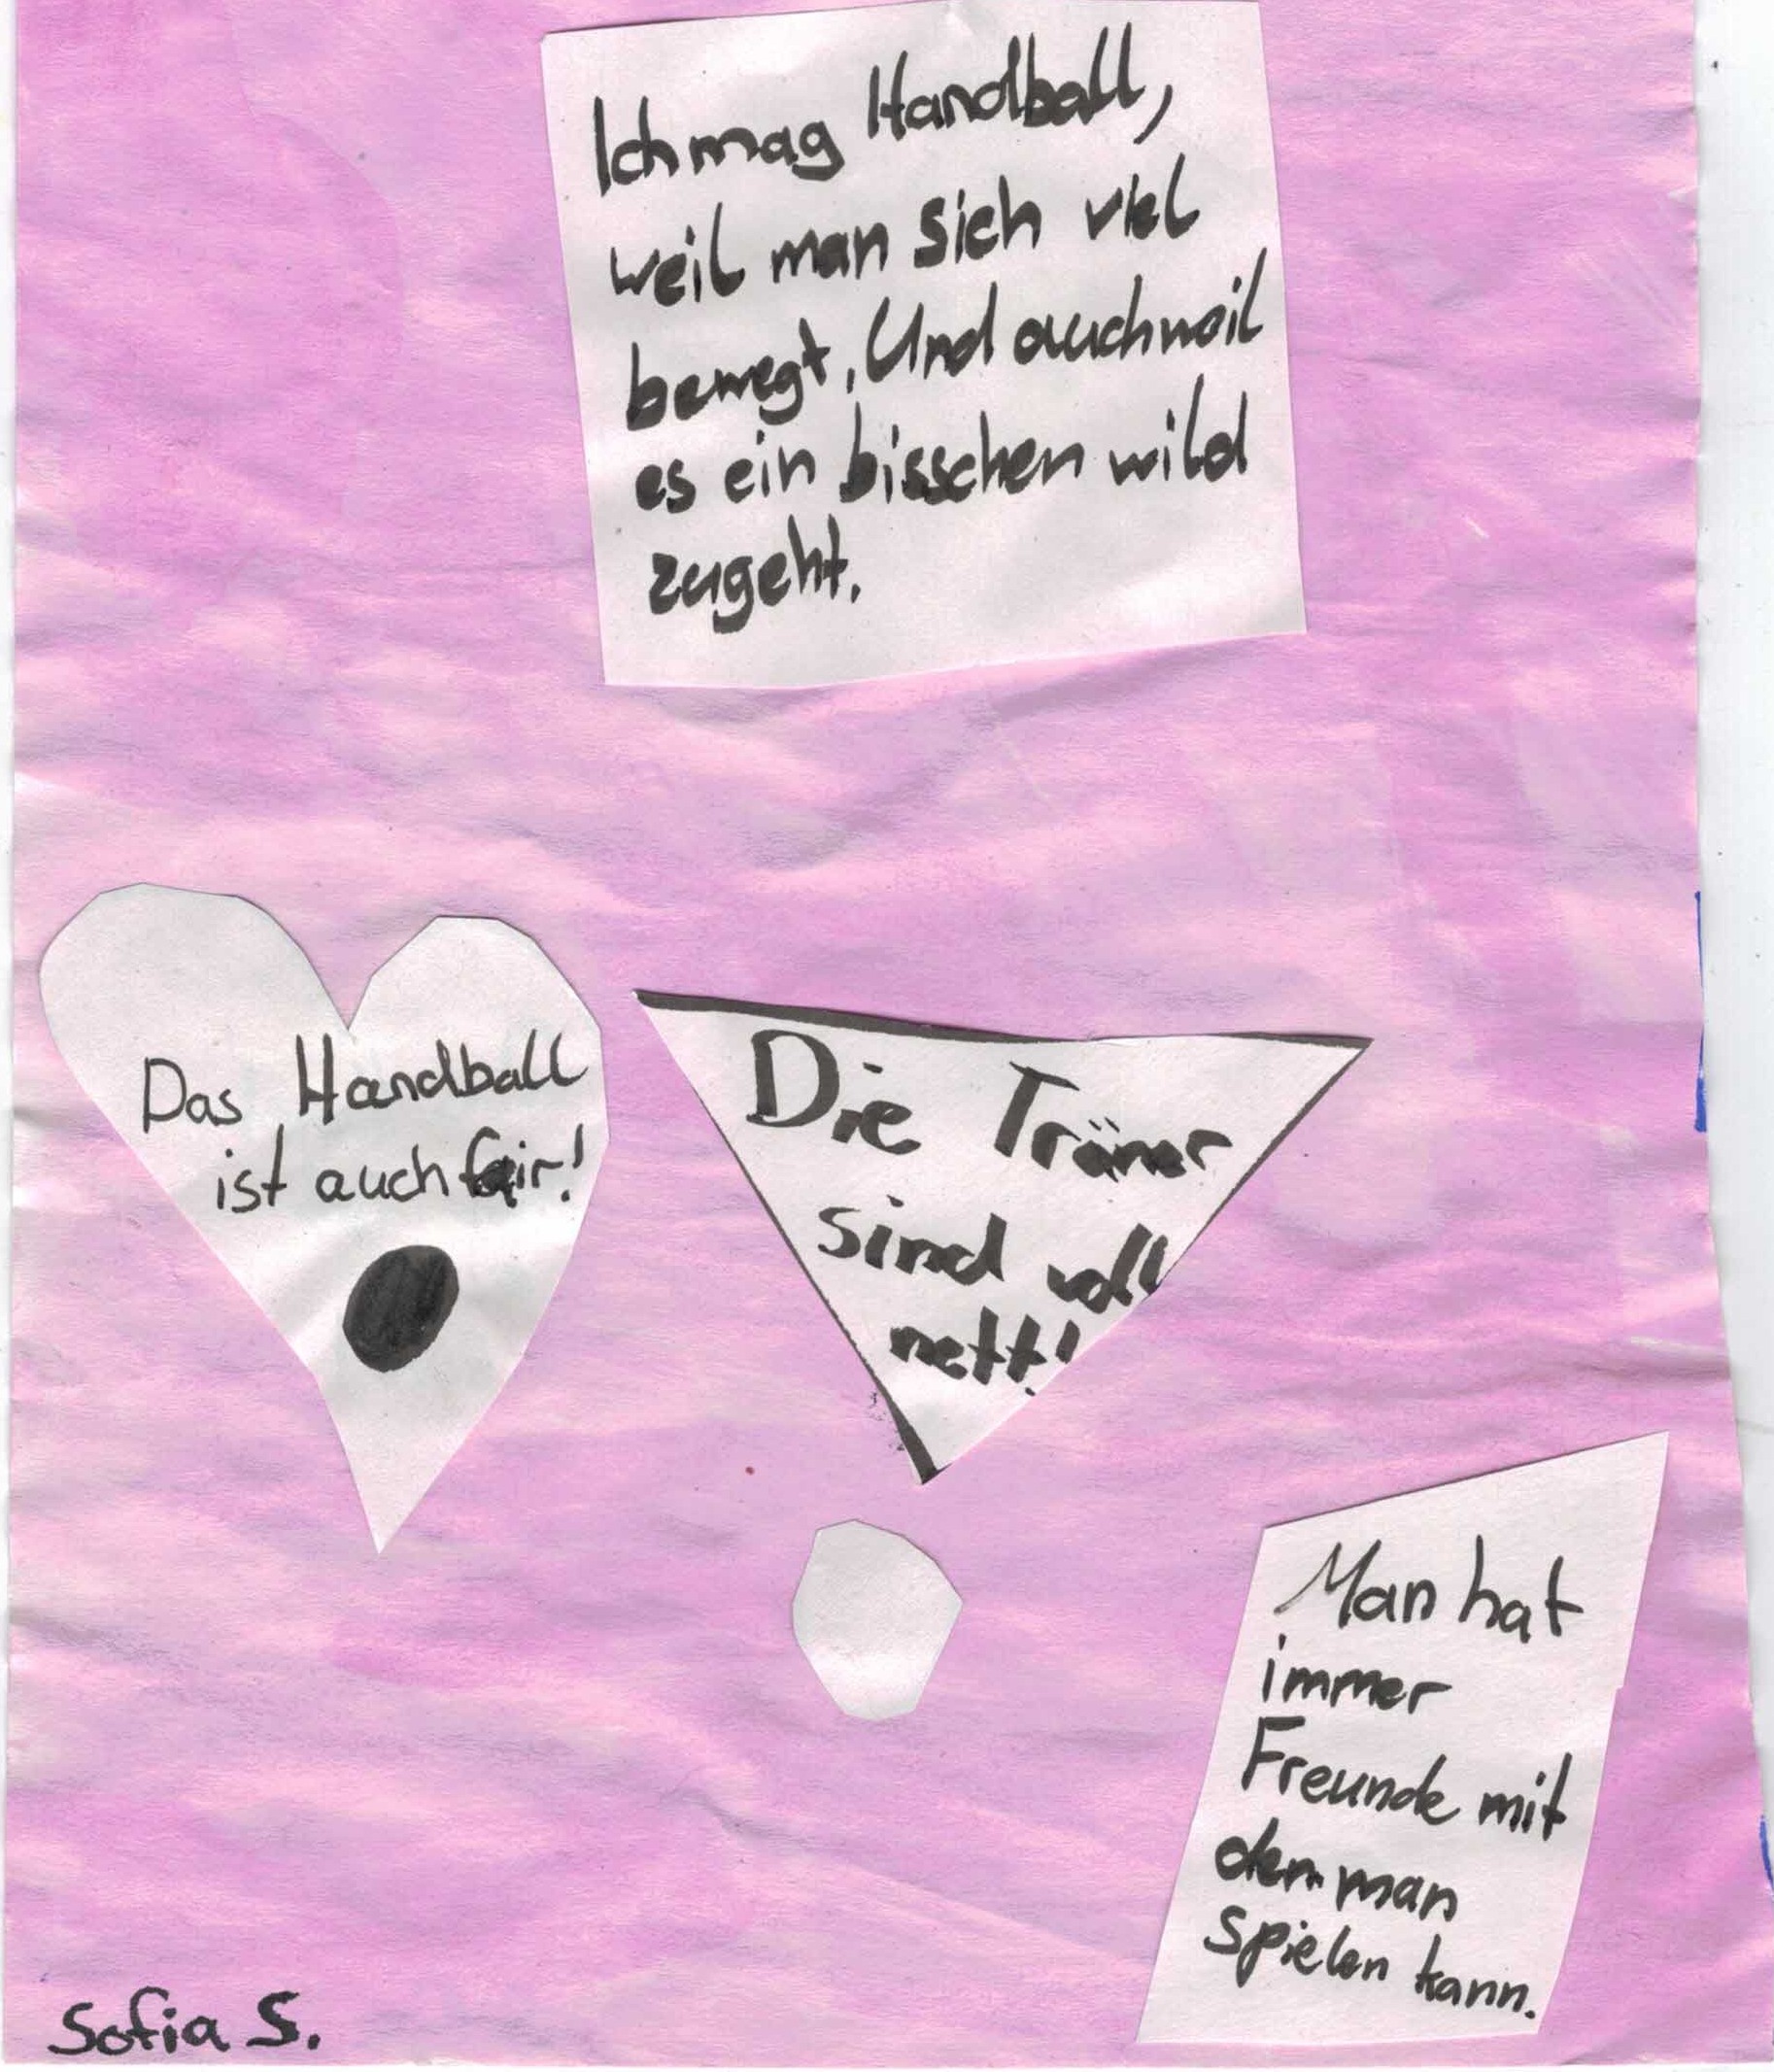 Ich mag Handball,
weil man sich viel
bewegt. Und auch weil
es ein bisschen wild
zugeht.
Das Handball
ist auch fair!
Die Träner
sind voll
nett!
Man hat
immer
Freunde mit
den man
spielen kann.
Sofia S.